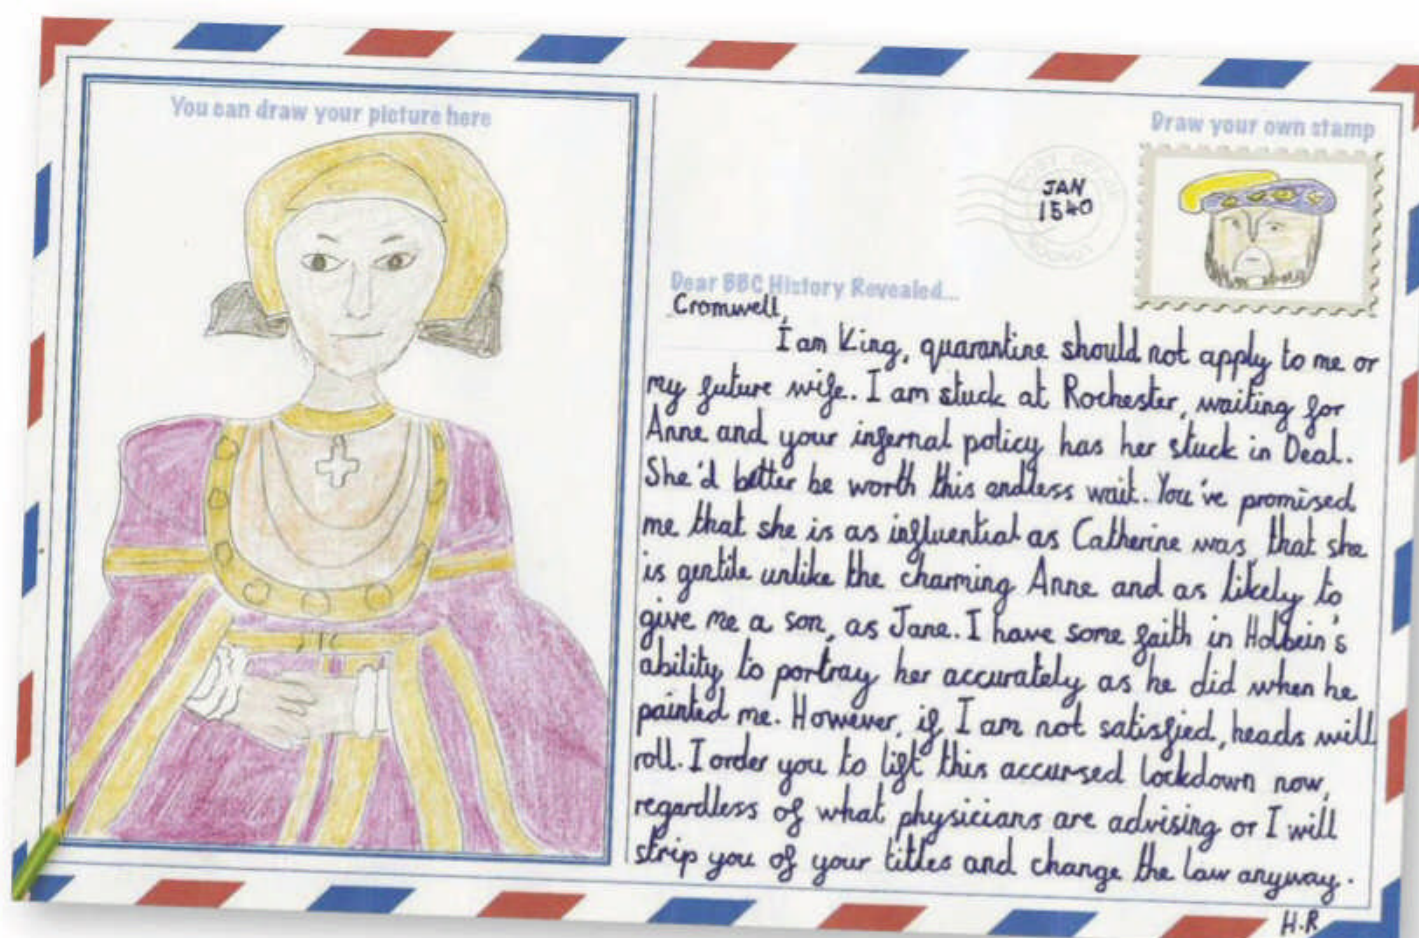 You can draw your picture here
Draw your own stamp
JAN
1540
Dear BBC History Revealed...
Cromwell,
I am King, quarantine should not apply to me or
my future wife. I am stuck at Rochester, waiting for
Anne and your infernal policy has her stuck in Deal.
She'd better be worth this endless wait. You've promised
me that she is as influential as Catherine was, that she
is gentile unlike the charming Anne and as likely to
give me a son, as Jane. I have some faith in Holbein's
ability to portray her accurately as he did when he
painted me. However, if I am not satisfied, heads will
roll. I order you to lift this accursed lockdown now,
regardless of what physicians are advising or I will
strip you of your titles and change the law anyway.
H.R